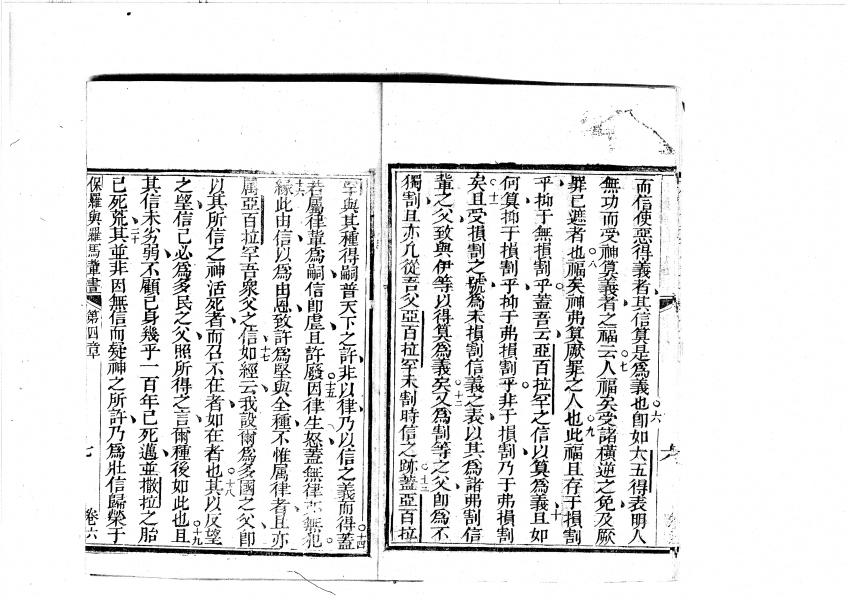 而信使惡得義者其信算是爲義也六卽如大五得表明人
無功而受神算義者之福七云人福矣受諸橫逆之免及厥
罪已遮者也八福矣神弗算厥罪之人也九此福且存于損割
乎抑于無損割乎蓋吾云亞百拉罕之信以算爲義且如十
何算抑于損割乎抑于弗損割乎非于損割乃于弗損割
矣十一且受損割之號爲未損割信義之表以其爲諸弗割信
輩之父致與伊等以得算爲義矣十二又爲割等之父卽爲不
獨割且亦凡從吾父亞百拉罕未割時信之跡十三蓋亞百拉
罕與其種得嗣普天下之許非以律乃以信之義而得十四蓋
若屬律輩爲嗣信卽虛且許廢十五因律生怒蓋無律亦無犯
十六緣此由信以爲由恩致許爲堅與全種不惟屬律者且亦
屬亞百拉罕吾衆父之信十七如經云我設爾爲多國之父卽
以其所信之神活死者而召不在者如在者也十八其以反望
之望信己必爲多民之父照所得之言爾種後如此也十九且
其信未劣弱不顧己身幾乎一百年已死邁並撒拉之胎
已死荒二十其並非因無信而疑神之所許乃爲壯信歸榮于
保羅與羅馬輩書 第四章 七 卷六